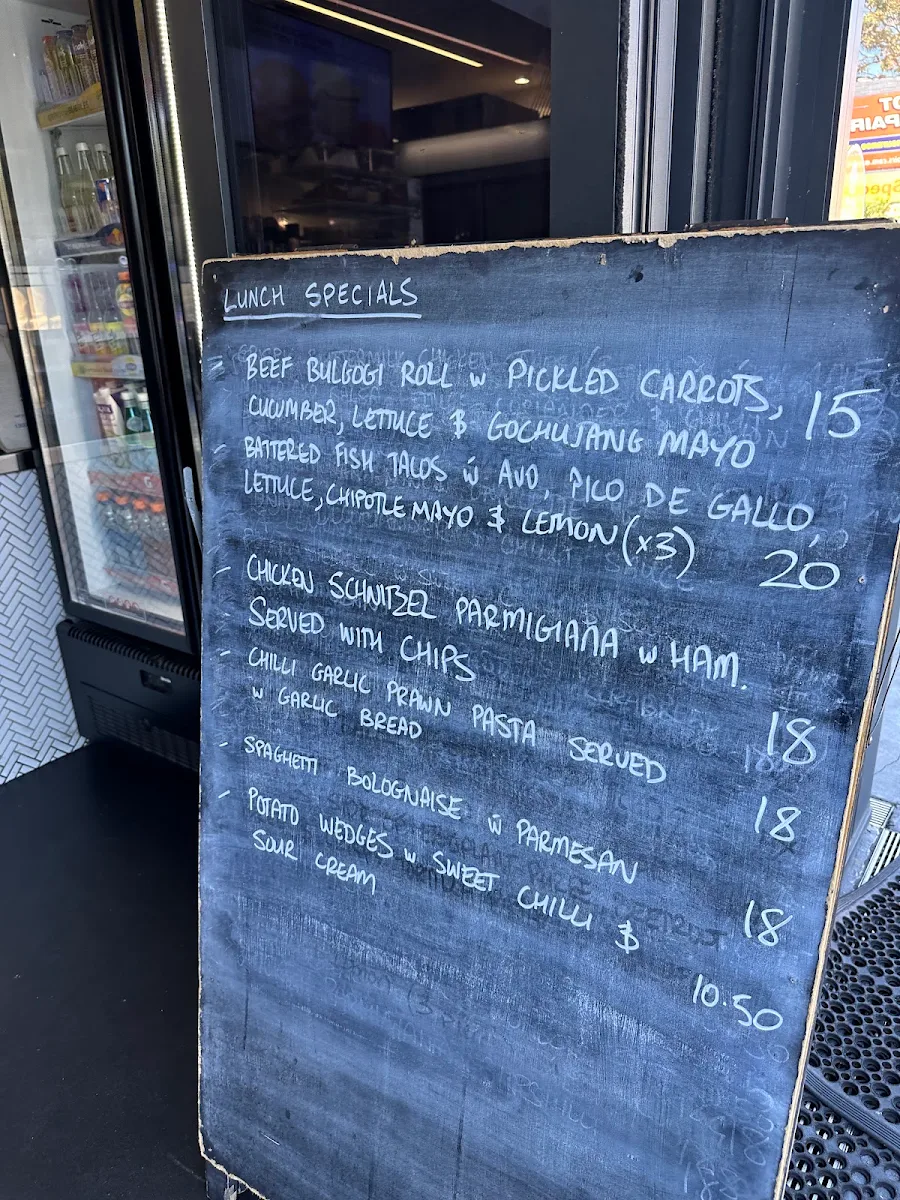 LUNCH SPECIALS
- BEEF BULGOGI ROLL w PICKLED CARROTS,
CUCUMBER, LETTUCE & GOCHUJANG MAYO 15
- BATTERED FISH TACOS w AVO, PICO DE GALLO,
LETTUCE, CHIPOTLE MAYO & LEMON (x3) 20
- CHICKEN SCHNITZEL PARMIGIANA w HAM.
SERVED WITH CHIPS 18
- CHILLI GARLIC PRAWN PASTA SERVED
w GARLIC BREAD 18
- SPAGHETTI BOLOGNAISE w PARMESAN 18
- POTATO WEDGES w SWEET CHILLI &
SOUR CREAM 10.50